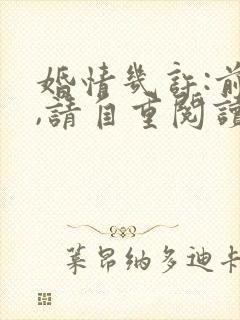 婚情幾許:前
,請自重閱讀
莱昂纳多迪卡